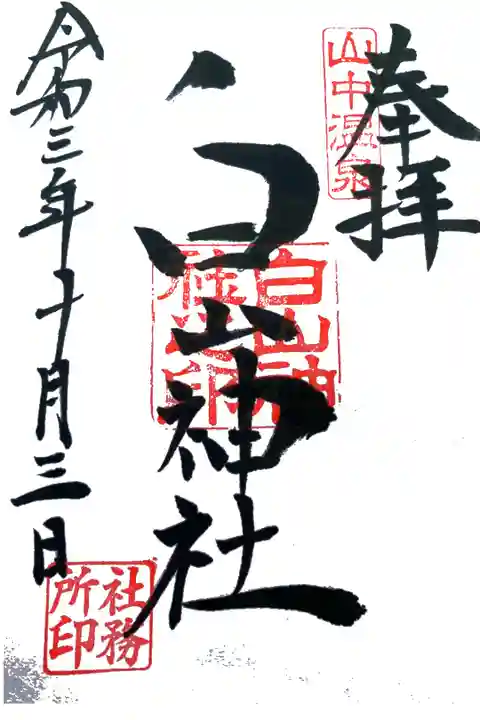 奉拝
山中温泉
白山神社
白山神
社之印
令和三年十月三日
社務
所印